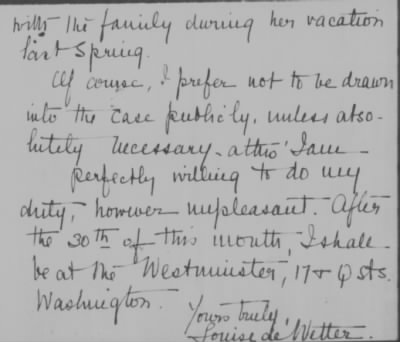 with the family during her vacation
last Spring.
Of course, I prefer not to be drawn
into the case publicly, unless abso-
lutely necessary - altho' I am -
perfectly willing to do my
duty, however unpleasant. After
the 30th of this month, I shall
be at the Westminster, 17 & Q sts.
Washington.
Yours truly,
Louise de Wetter.